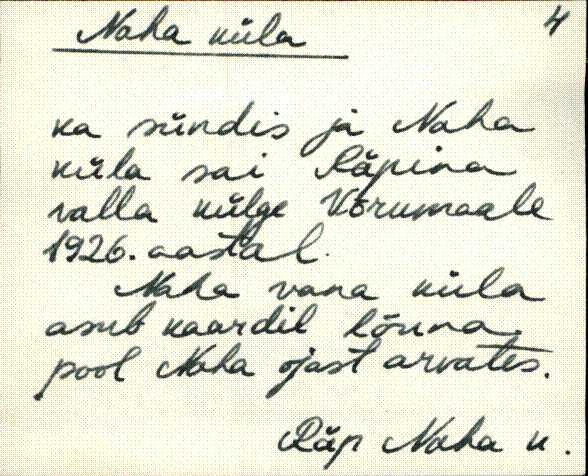 Naha küla
4
ka sündis ja Naha
küla sai Räpina
valla külge Võrumaale
1926. aastal.
Naha vana küla
asub kaardil lõuna
pool Naha ojast arvates.
Räp Naha k.